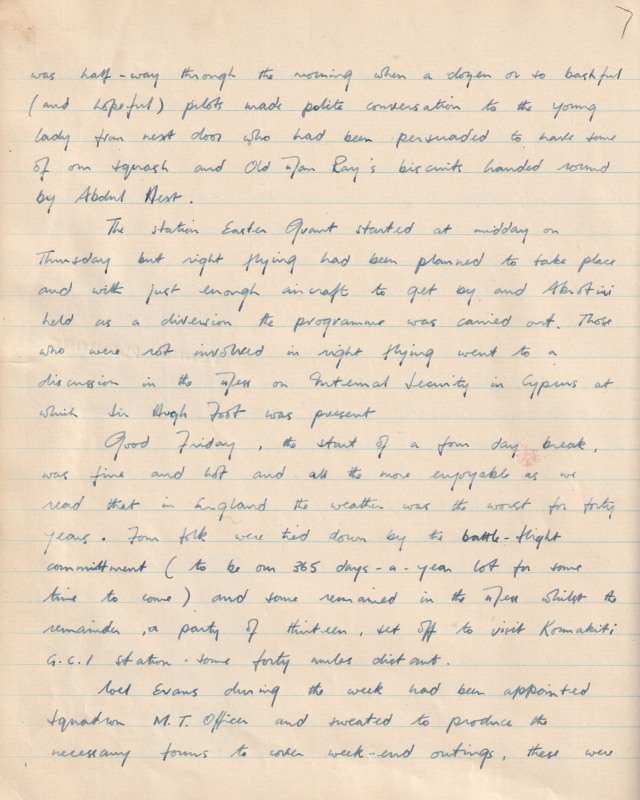 7
was half-way through the morning when a dozen or so bashful
(and hopeful) pilots made polite conversation to the young
lady from next door who had been persuaded to have some
of our squash and Old Man Ray's biscuits handed round
by Abdul Hest.
The station Easter Grant started at midday on
Thursday but night flying had been planned to take place
and with just enough aircraft to get by and Akrotiri
held as a diversion the programme was carried out. Those
who were not involved in night flying went to a
discussion in the Mess on Internal Security in Cyprus at
which Sir Hugh Foot was present
Good Friday, the start of a four day break,
was fine and hot and all the more enjoyable as we
read that in England the weather was the worst for forty
years. Four folk were tied down by the battle-flight
committment (to be our 365 days-a-year lot for some
time to come) and some remained in the Mess whilst the
remainder, a party of thirteen, set off to visit Komakiti
G.C.I station some forty miles distant.
Evans during the week had been appointed
Squadron M.T. Officer and sweated to produce the
necessary forms to cover week-end outings, these were